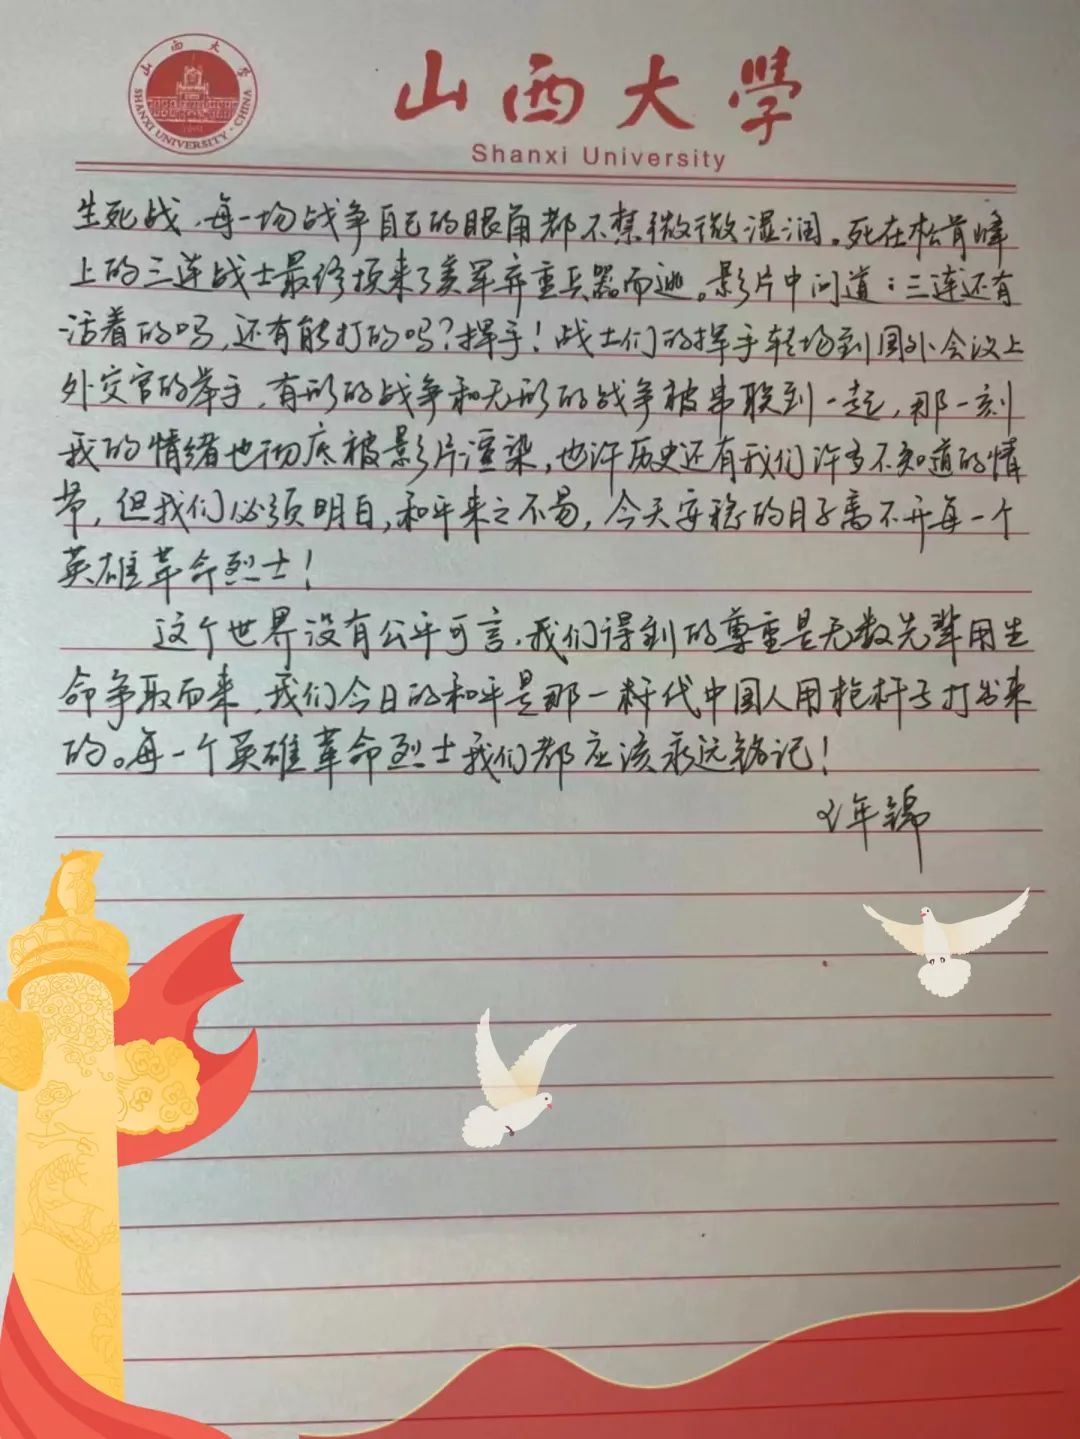 山西大学
SHANXI UNIVERSITY · CHINA
山西大学
Shanxi University
生死战，每一场战争自己的眼角都不禁微微湿润。死在松骨峰
上的三连战士最终换来了美军弃重兵器而逃。影片中问道：三连还有
活着的吗，还有能打的吗？挥手！战士们的挥手转场到国外会议上
外交官的举手，有形的战争和无形的战争被串联到一起，那一刻
我的情绪也彻底被影片渲染，也许历史还有我们许多不知道的情
节，但我们必须明白，和平来之不易，今天安稳的日子离不开每一个
英雄革命烈士！
这个世界没有公平可言，我们得到的尊重是无数先辈用生
命争取而来，我们今日的和平是那一辈代中国人用枪杆子打出来
的。每一个英雄革命烈士我们都应该永远铭记！
年锦